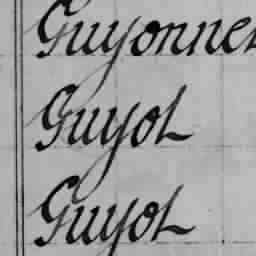 Guyonnet
Guyot
Guyot